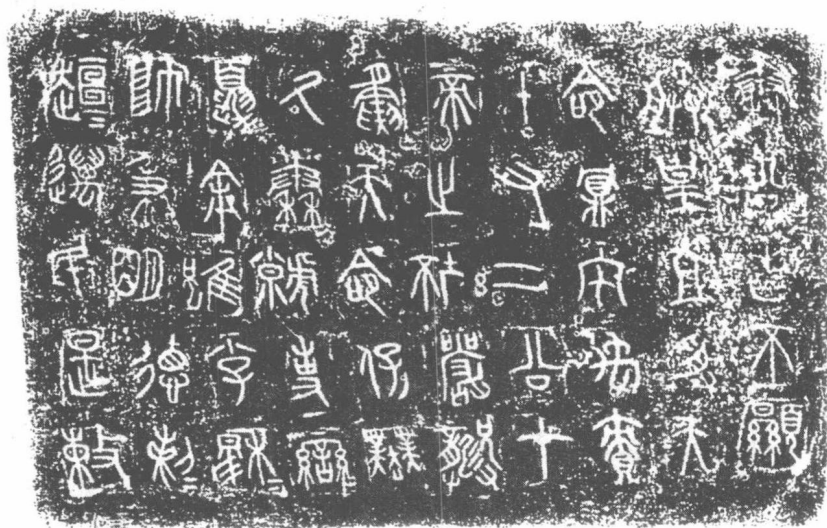 秦公曰不顯
朕皇且受天
命鼏宅禹責
十又二公才
帝之坏嚴龏
夤天命保業
氒秦虩事䜌
夏余雖小子穆=
帥秉明德剌=
趄=邁民是敕